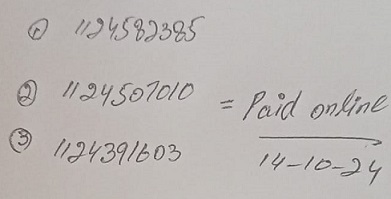 ① 1124582385
② 1124507010 = Paid online
③ 1124391603
14-10-24